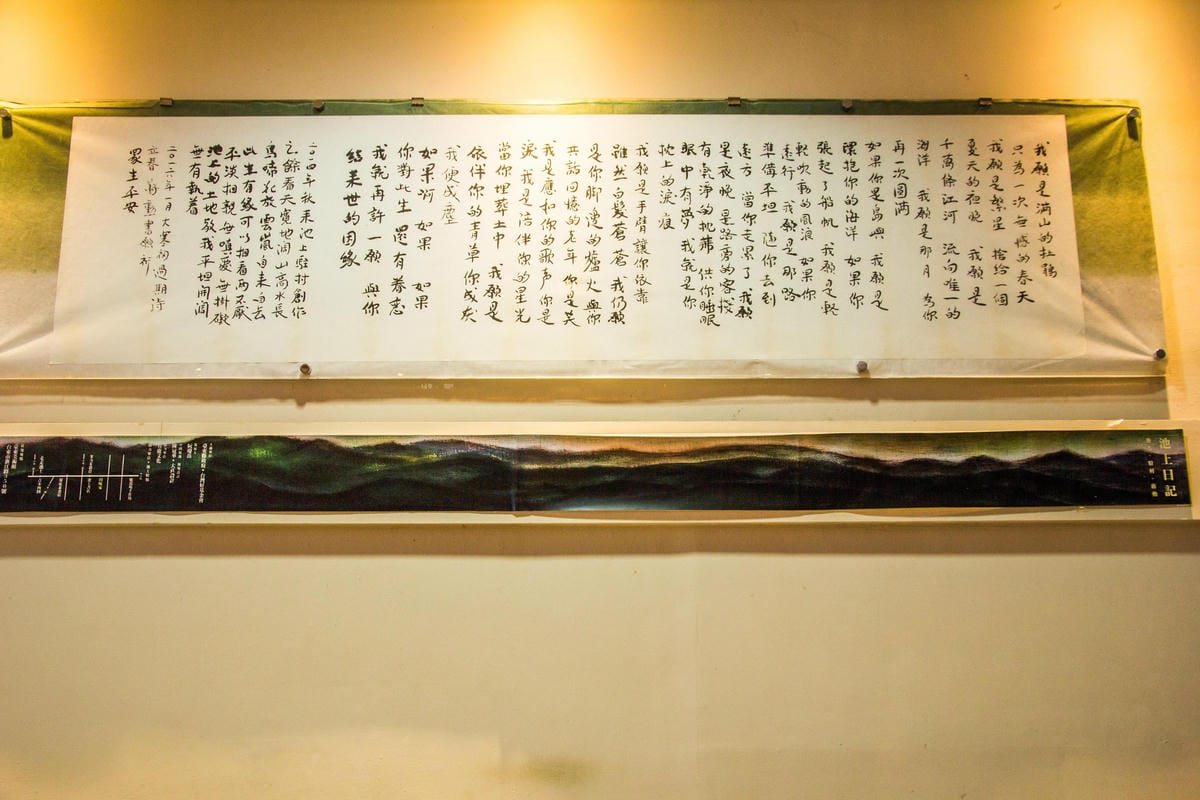 我願是滿山的杜鵑
只為一次無憾的春天
我願是繁星　捨給一個
夏天的夜晚　我願是
千萬條江河　流向唯一的
海洋　我願是那月　為你
再一次圓滿
如果你是島嶼　我願是
環抱你的海洋　如果你
張起了船帆　我願是輕
輕吹動的風浪　如果你
遠行　我願是那路
準備平坦　隨你去到
遠方　當你走累了　我願
是夜晚　是路旁的客棧
有乾淨的枕蓆　供你睡眠
眠中有夢　我就是你
枕上的淚痕
我願是手臂讓你依靠
雖然白髮蒼蒼　我仍願
是你腳邊的爐火與你
共話回憶的老年　你是笑
我是應和你的歌声　你是
淚　我是陪伴你的星光
當你埋葬土中　我願是
依伴你的青草　你成灰
我便成塵
如果啊　如果　如果
你對此生　還有眷恋
我就再許一願　與你
結来世的因緣
二〇一四年秋来池上駐村創作
之餘看天寬地闊山高水長
鳥啼花放雲嵐自来自去
此生有緣可以相看兩不厭
平淡相親　無嗔愛　無掛礙
池上的土地教我平坦開闊
無有執着
二〇一六年一月大寒初過　題詩
立春　蔣勳書願祈
眾生平安
池上日記
蔣勳